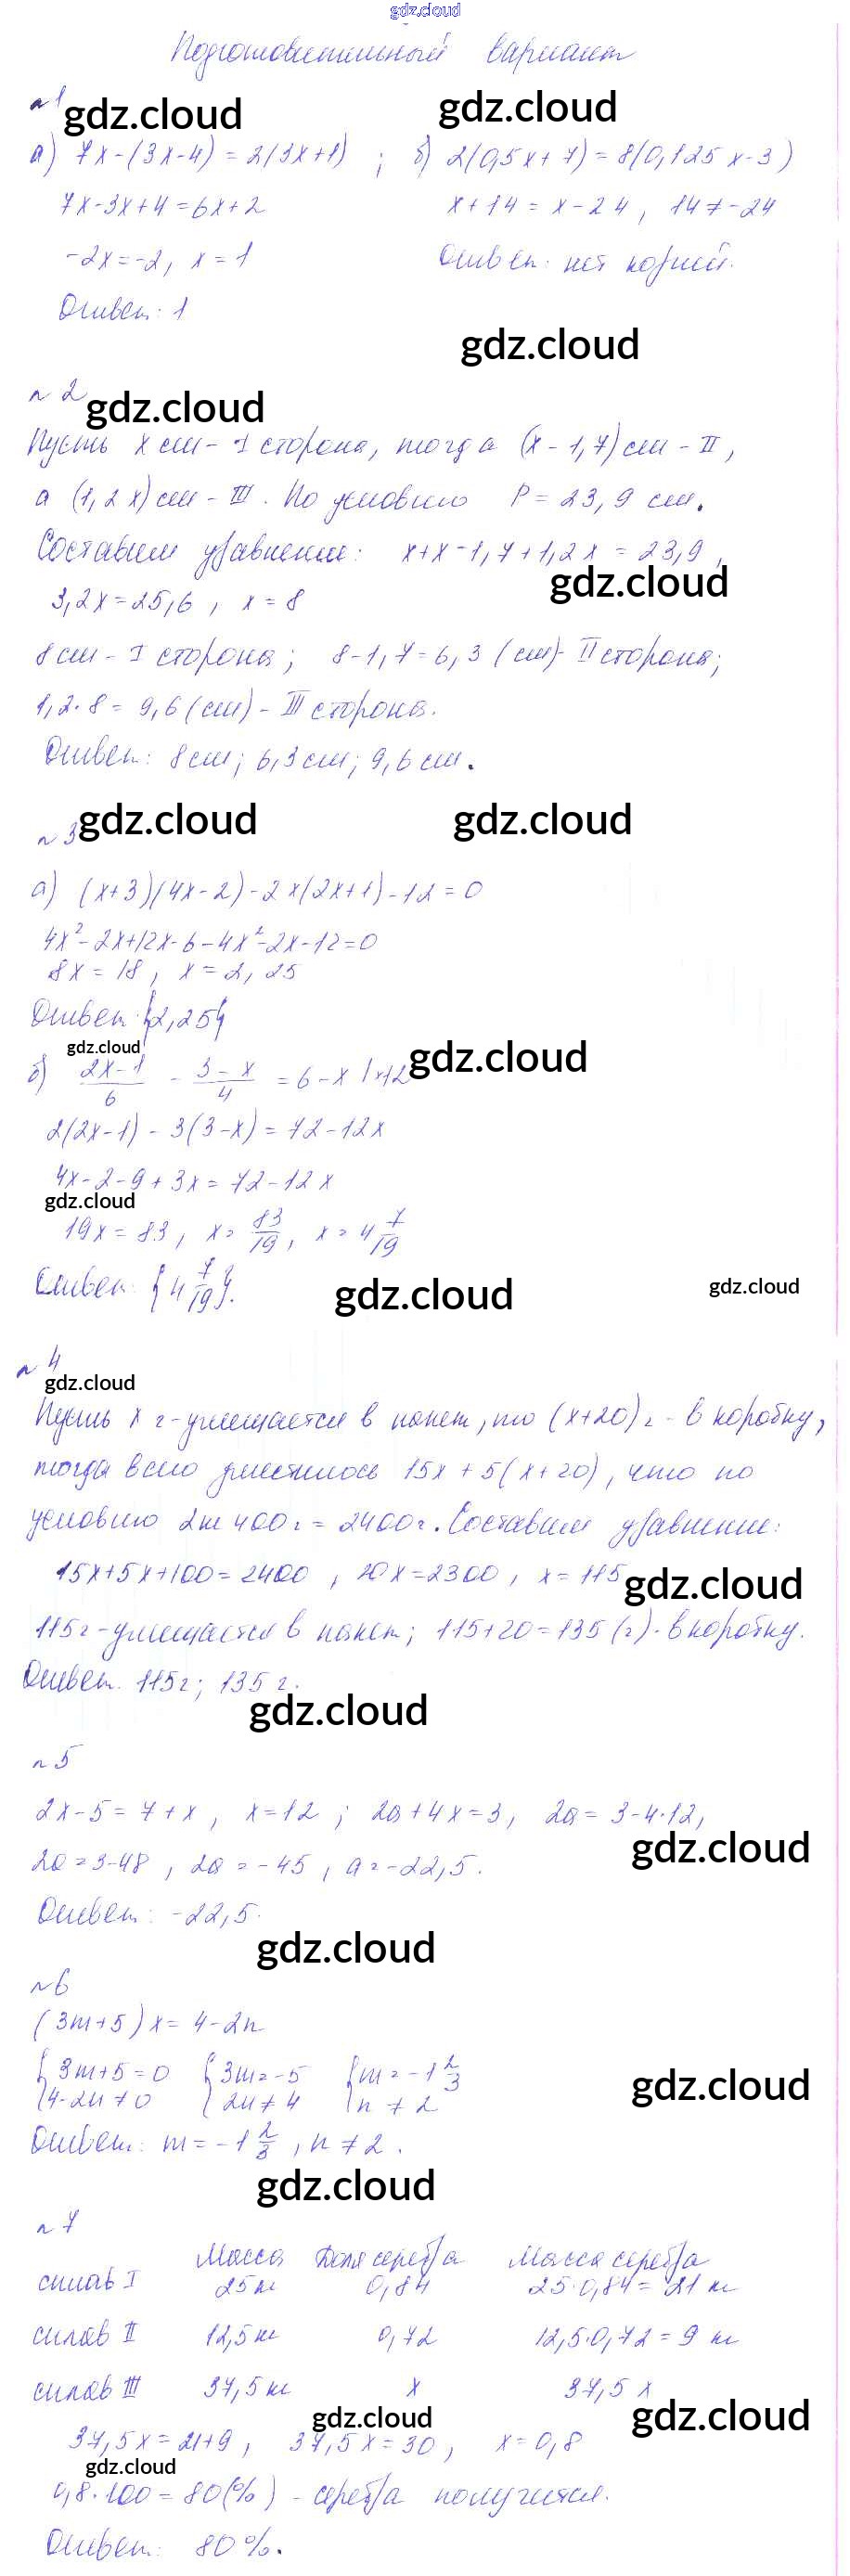 gdz.cloud
Подготовительный вариант
n 1 gdz.cloud gdz.cloud
а) 7x-(3x-4) = 2(3x+1) ; б) 2(0,5x+7) = 8(0,125x-3)
7x-3x+4 = 6x+2 x+14 = x-24, 14≠-24
-2x=-2, x=1 Ответ: нет корней.
Ответ: 1
gdz.cloud
n 2 gdz.cloud
Пусть x см - I сторона, тогда (x-1,7) см - II,
а (1,2x) см - III. По условию P = 23,9 см.
Составим уравнение: x+x-1,7+1,2x = 23,9,
gdz.cloud
3,2x=25,6, x=8
8 см - I сторона; 8-1,7=6,3 (см)- II сторона;
1,2·8= 9,6 (см) - III сторона.
Ответ: 8 см; 6,3 см; 9,6 см.
n 3 gdz.cloud gdz.cloud
а) (x+3)(4x-2)-2x(2x+1)-12=0
4x²-2x+12x-6-4x²-2x-12=0
8x = 18, x=2,25
Ответ: {2,25}
gdz.cloud gdz.cloud
б) (2x-1)/6 - (3-x)/4 = 6-x |×12
2(2x-1) - 3(3-x) = 72-12x
4x-2-9+3x=72-12x
gdz.cloud
19x = 83, x= 83/19, x = 4 7/19
Ответ: {4 7/19}.
gdz.cloud gdz.cloud
n 4
gdz.cloud
Пусть x г - умещается в пакет, то (x+20) г - в коробку,
тогда всего уместилось 15x + 5(x+20), что по
условию 2кг 400г = 2400г. Составим уравнение:
15x+5x+100=2400, 20x=2300, x=115
gdz.cloud
115г - умещается в пакет; 115+20=135 (г) - в коробку.
Ответ. 115г; 135г.
gdz.cloud
n 5
2x-5=7+x, x=12; 2a+4x=3, 2a=3-4·12,
gdz.cloud
2a=3-48, 2a=-45, a=-22,5.
Ответ: -22,5.
gdz.cloud
n 6
(3m+5)x = 4-2n
{3m+5=0 {3m=-5 {m=-1 2/3
{4-2n≠0 {2n≠4 {n≠2
gdz.cloud
Ответ: m=-1 2/3, n≠2.
gdz.cloud
n 7
Масса Доля серебра Масса серебра
сплав I 25кг 0,84 25·0,84=21 кг
сплав II 12,5кг 0,72 12,5·0,72=9 кг
сплав III 37,5кг x 37,5x
gdz.cloud gdz.cloud
37,5x=21+9, 37,5x=30, x=0,8
gdz.cloud
0,8·100=80(%) - серебра получится.
Ответ: 80%.